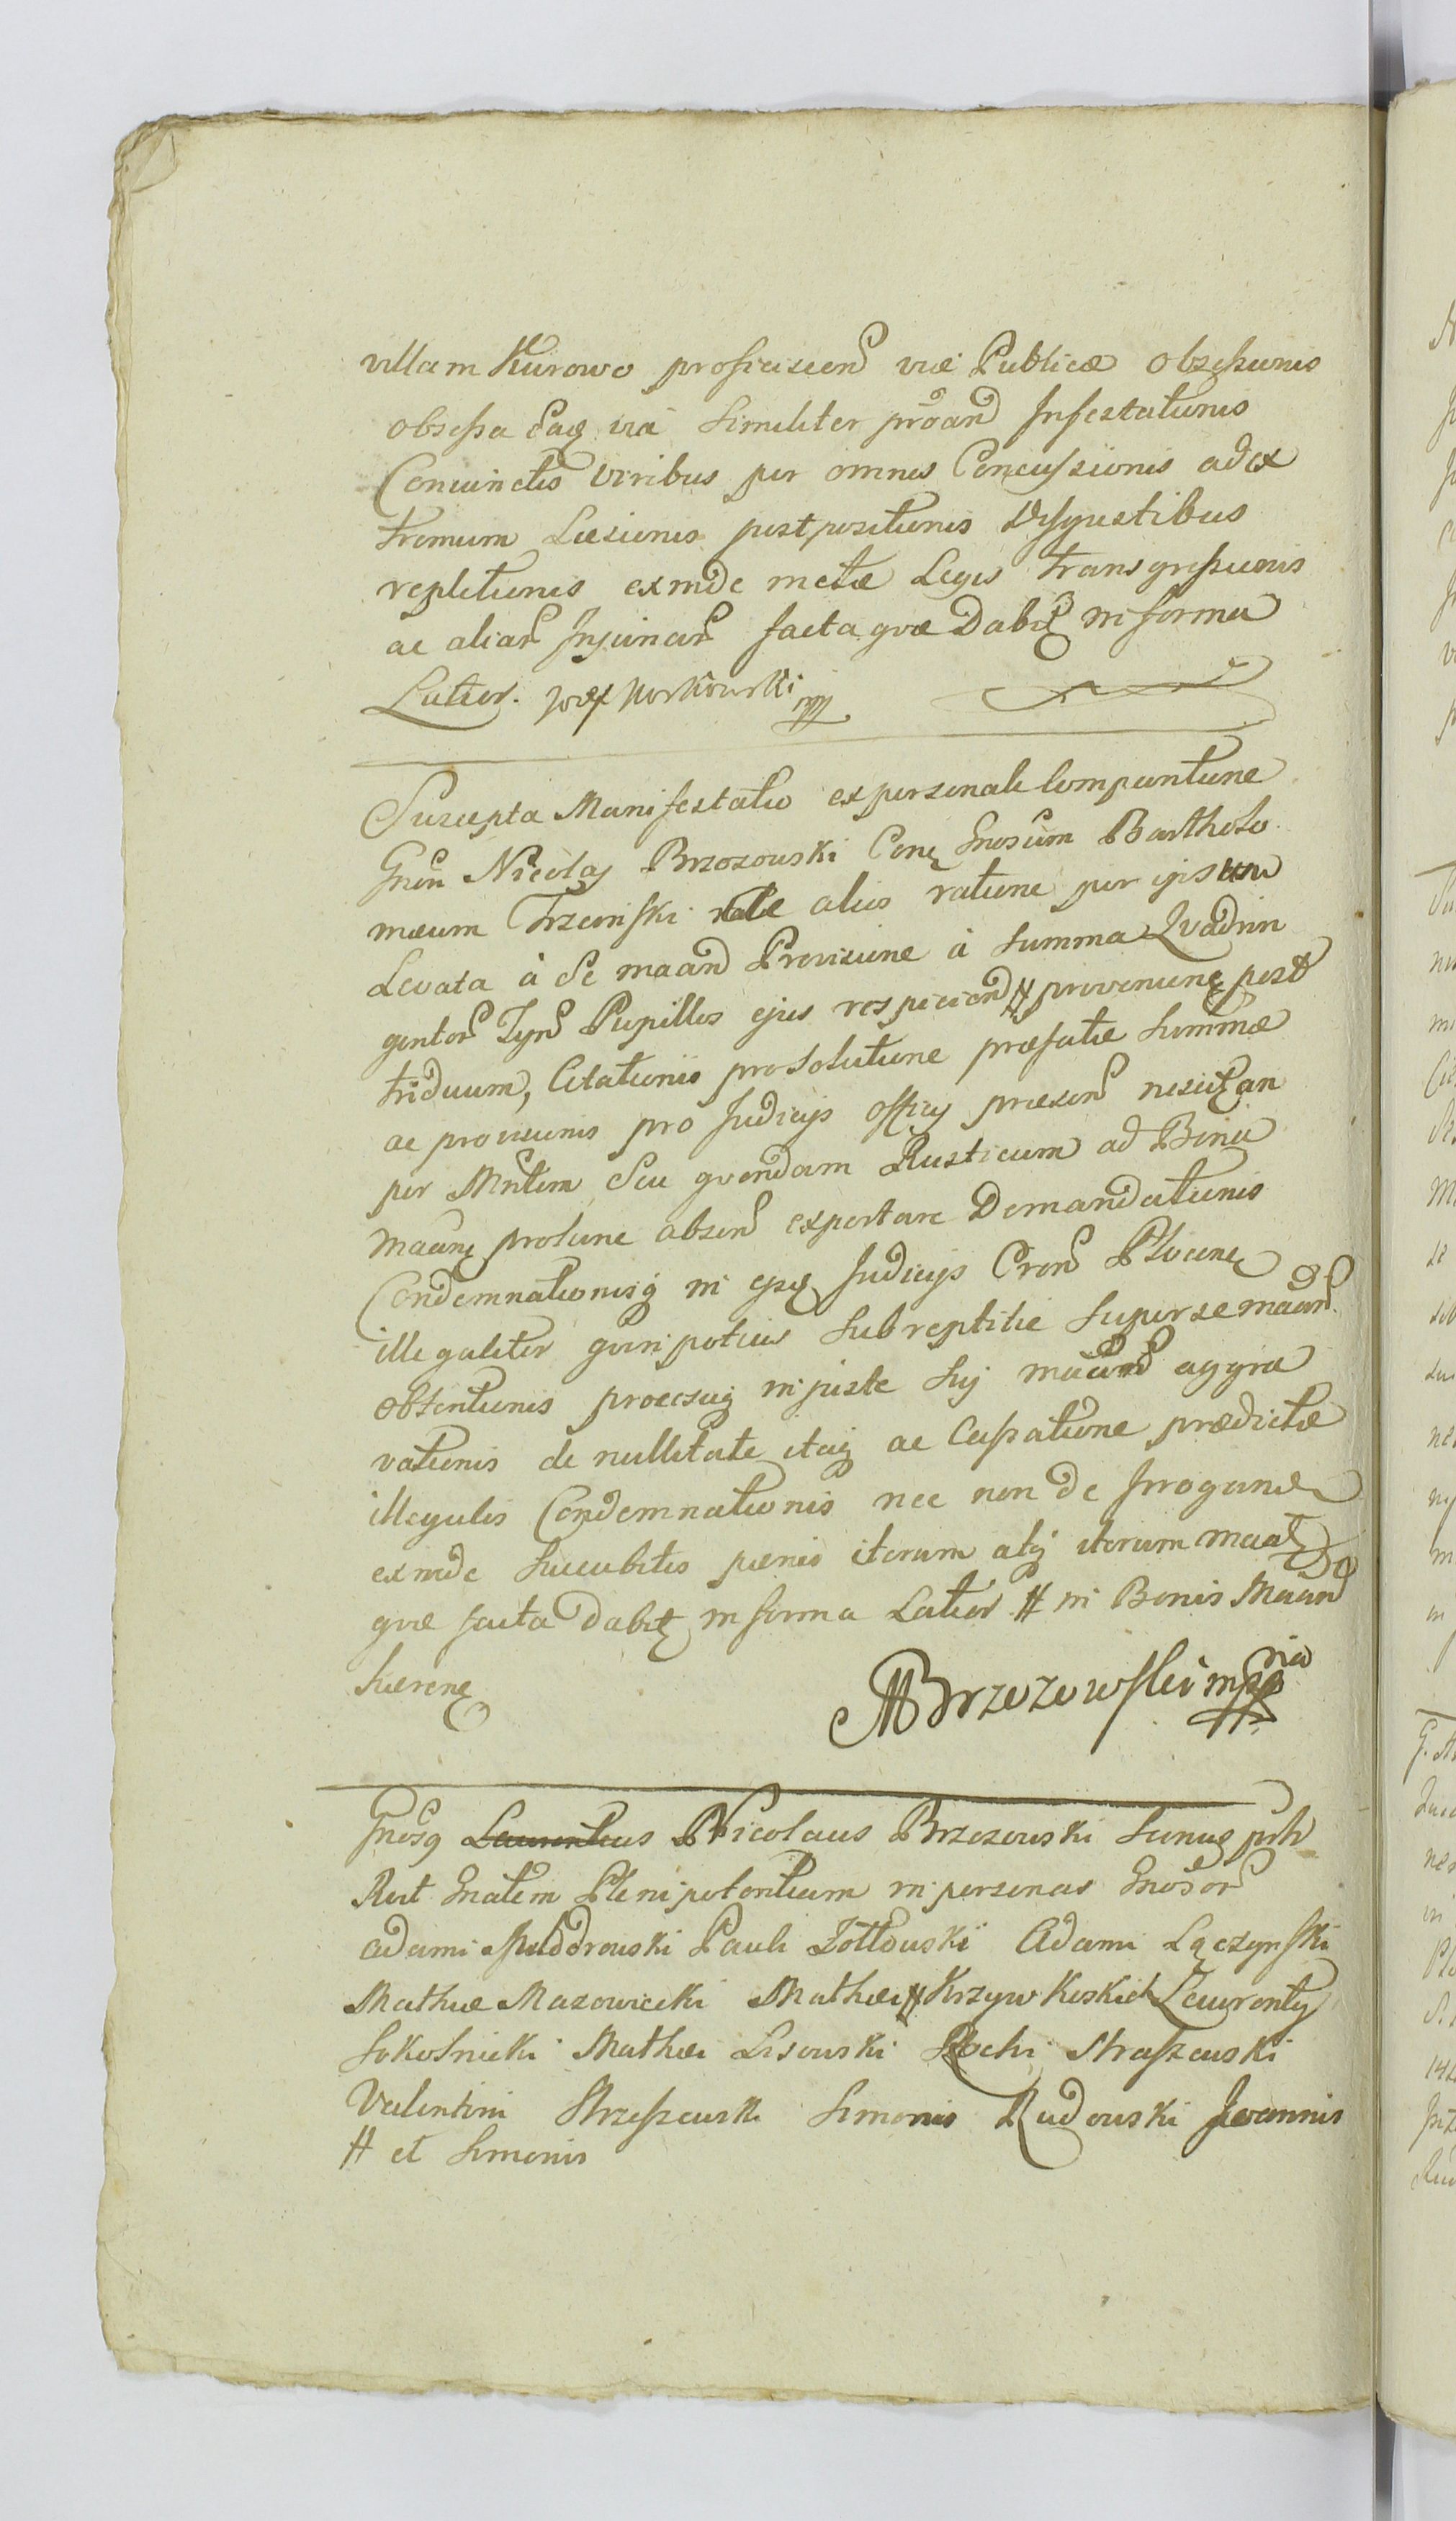 villam Kurowo proficiscen viæ Publicæ obsessionis
obsessa eaq via similiter proand Infestationis
Coniunctis viribus per omnes Concussionis ad ex
tremum Læsionis postpositionis Disgustibus
repletionis exinde metæ Legis transgressionis
ac aliar Injuriar facta quæ Dabit in forma
Latior. Józef
Suscepta Manifestatio ex personali Comparitione
Gnosi Nicolaj Brzozowski Con Gnosum Bartholo
mæum Trzcinski aliis ratione per ipsum
Levata à Se maand Provisione à Summa Quadrin
gentor Tynf Pupillos ejus respicien # provenien post
triduum, Citationis pro Solutione præfatæ Summæ
ac provisionis pro Judicijs officij præsen nescitr an
per Mnlem Seu quendam Rusticum ad Bona
maan pro tunc absen exportare Demandationis
Condemnationisq in ejsq Judicijs Cron Plocen
illegaliter quin potius Subreptitie Super se maan
obtentionis processuq injuste Sui maand aggra
vationis de nullitate itaq ac Cassatione prædictæ
illegalis Condemnationis nec non de Irrogand
exinde Succubitis pænis iterum atq iterum maat
quæ facta Dabit in forma Latior # in Bonis Maand
hæren
NBrzozowski mppria
Gnosq Laurentius Nicolaus Brzozowski Sanus
Rect Gnalem Plenipotentiam in personas Gnosor
Adami Pauli Zołtowski Adami Łączynski
Mathiæ Mazowiecki Mathæi # Krzywkoskich Laurentij
Sokolnicki Mathæi Lisowski Rochi Straszewski
Valentini Strzeszewski Simonis Rudowski Joannis
# et Simonis